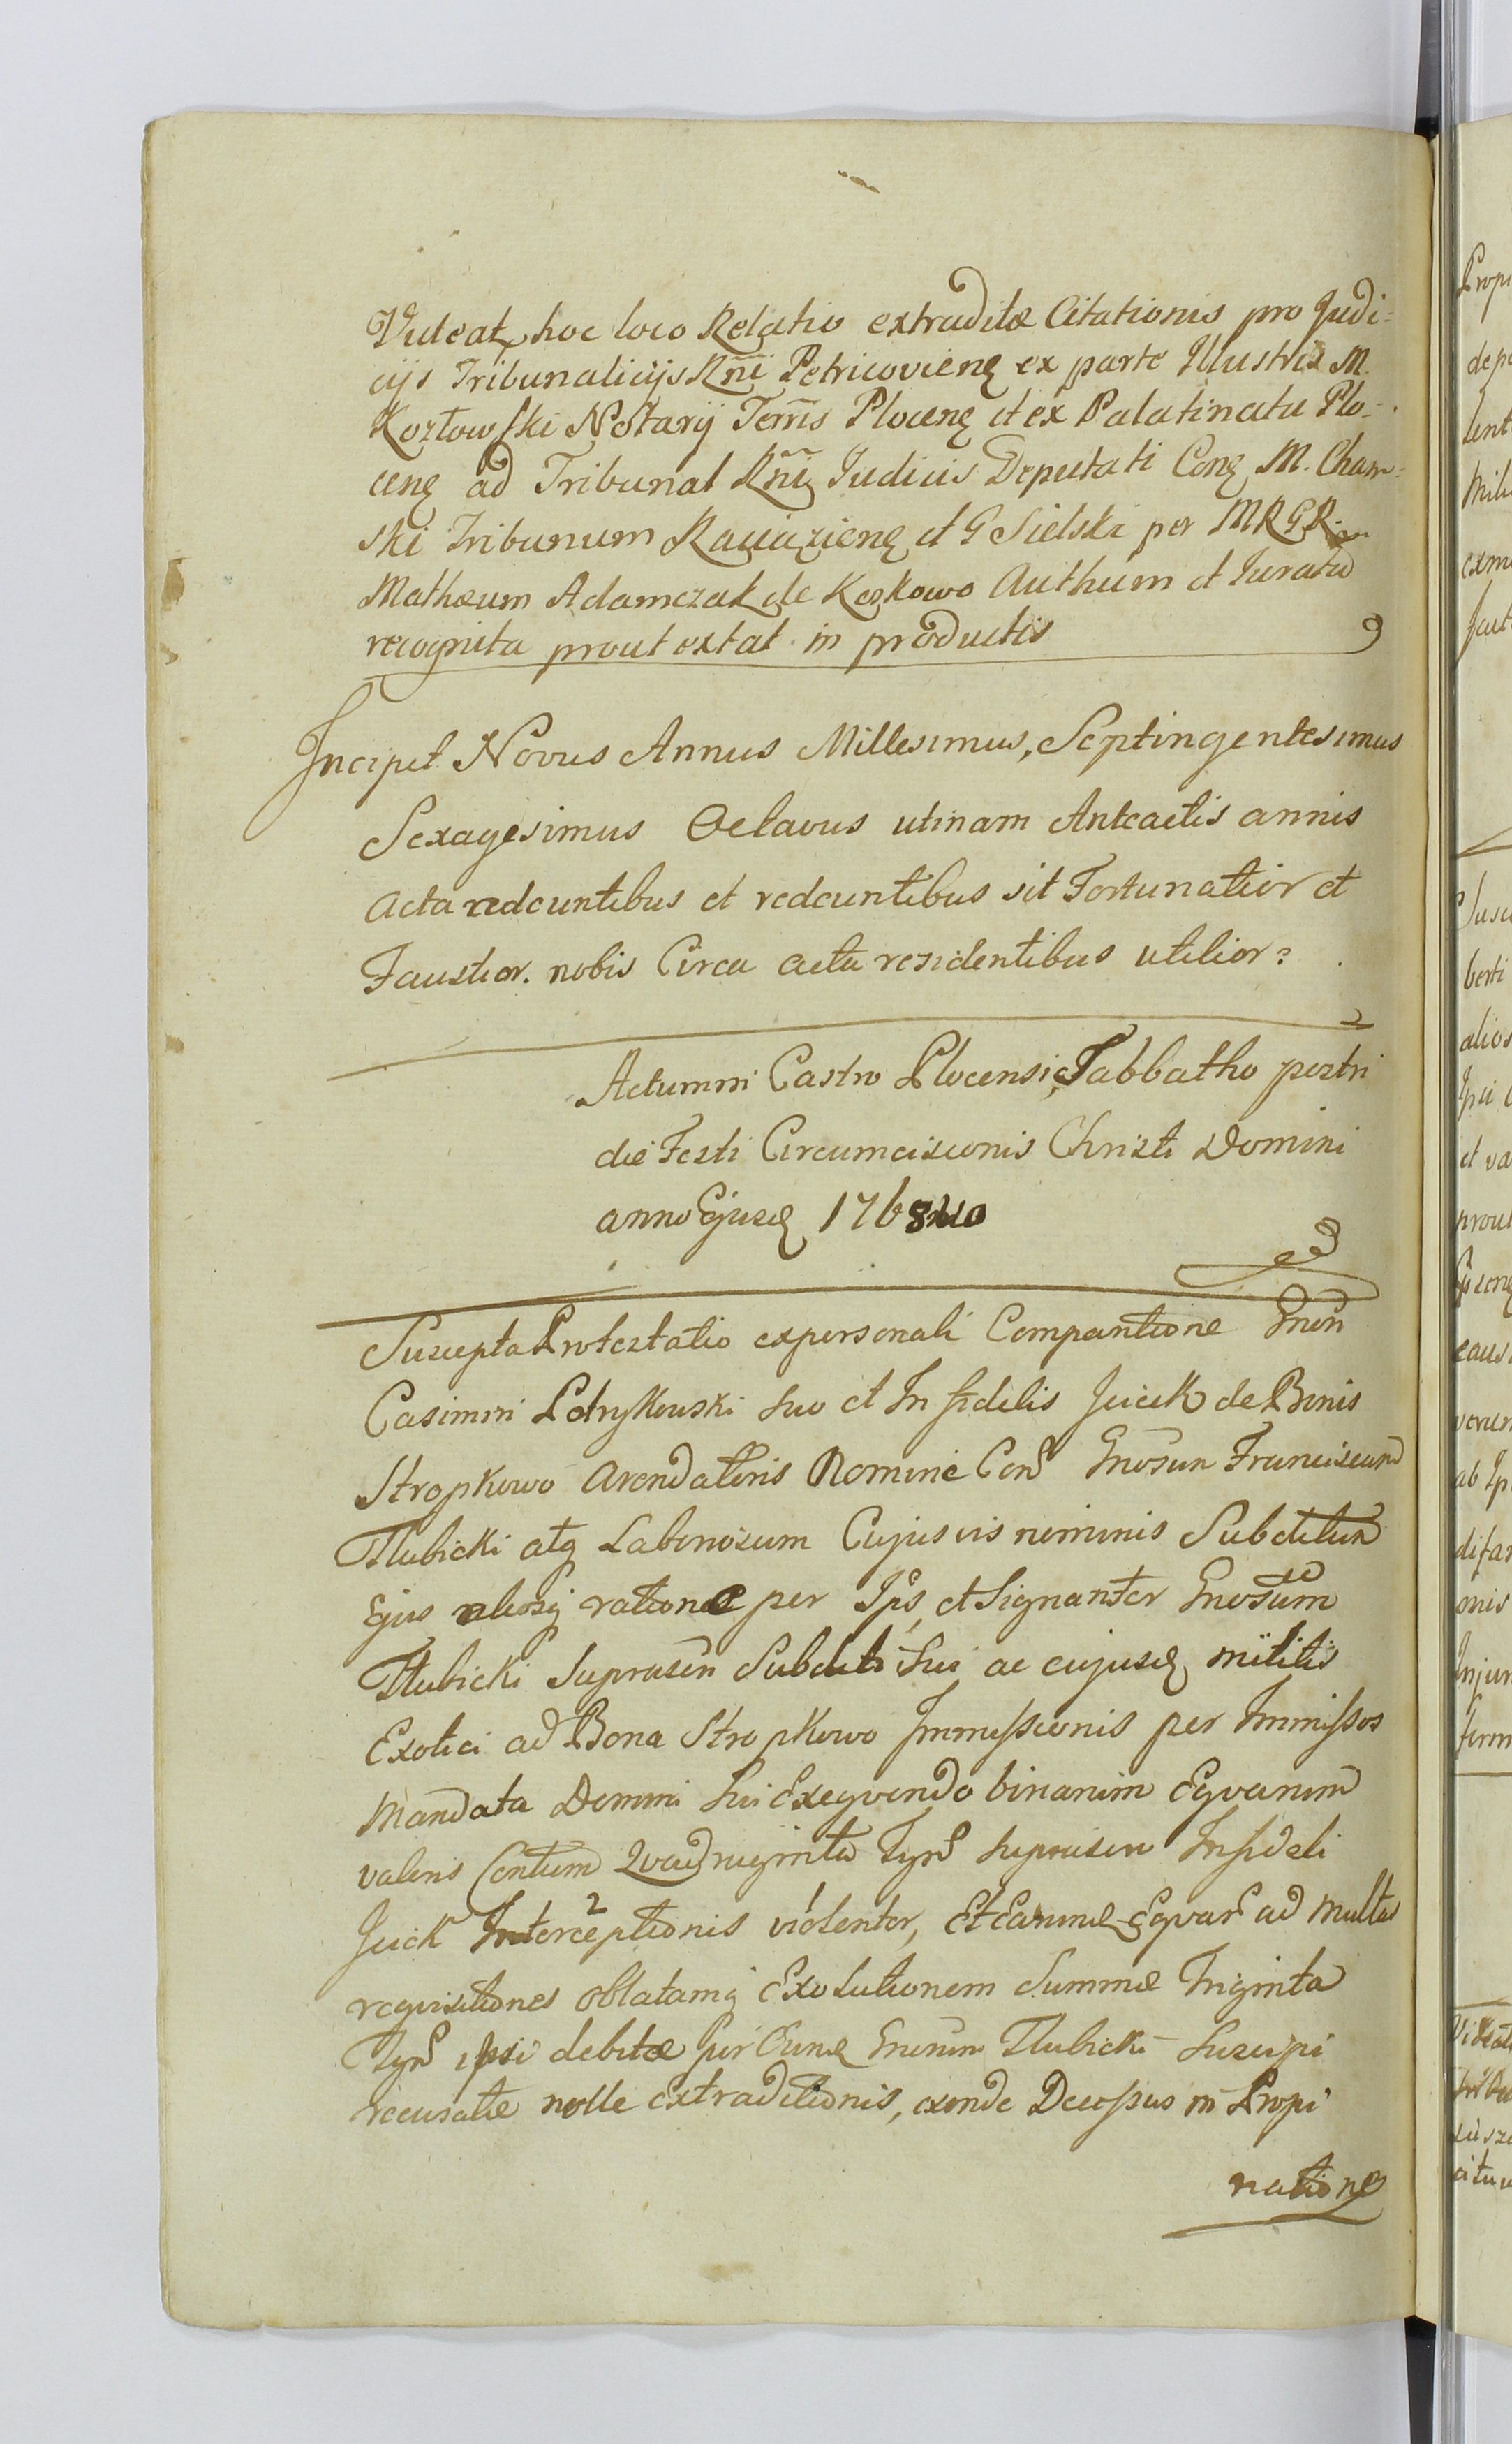 Videat hoc loco Relatio extraditæ Citationis pro Judi=
cijs Tribunalicijs Rñi Petricovienę ex parte Illustris M.
Kozłowski Notarij Terrīs Plocenę et ex Palatinatu Plo=
cenę ad Tribunal Rñi Judicis Deputati Conę M. Cham=
ski Tribunum Raciązienę et G Sielski per MRGR
Mathæum Adamczak de Kozkowo Authum et Juratū
recognita prout extat in productis
Incipit Novus Annus Millesimus, Septingentesimus
Sexagesimus Octavus utinam Anteactis annis
Acta redeuntibus et redeuntibus sit Fortunatior et
Faustior. nobis Circa acta residentibus utilior:
Actum in Castro Plocensi, Sabbatho postri
die Festi Circumcisionis Christi Domini
anno Ejusdę 1768vo
Suscepta Protestatio ex personali Comparitione Gnen
Casimiri Petrykowski suo et Infidelis Jcick de Bonis
Stropkowo Arendatoris Nomine Con Gnosum Franciscum
Tłubicki atq Laboriosum Cujusvis nominis Subditum
Ejus aliosq ratione per Ips et Signanter Gnosum
Tłubicki Suprascn Subditi Sui ac cujusdę militis
Exotici ad Bona Stropkowo Immissionis per Immissos
Mandata Domini sui Exequendo binarum Equarum
valoris Centum Quadraginta Tynf suprascn Infideli
Jcick Interceptionis violenter, Et Earumdę Equar ad multas
requisitiones oblatamq Exolutionem Summæ Triginta
Tynf ipsi debitæ per Eundę Gnosum Tłubicki Suscipi
recusatæ nolle extraditionis, exinde Decessus in Propi
nationę
Prop
dep
lent
mili
exm
fact
Susc
berti
alios
Ipsi
et va
prout
caus
verum
ab Ip
difa
onis
Injur
firm